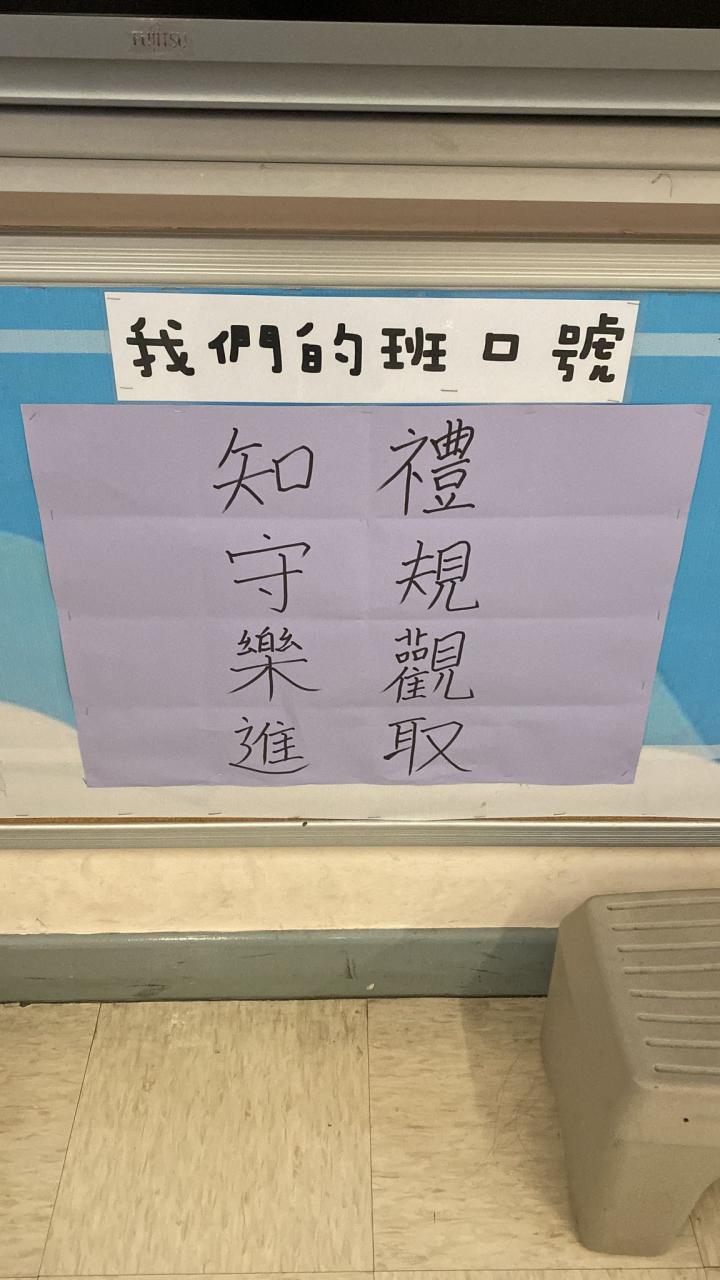 FUJITSU
我們的班口號
知禮
守規
樂觀
進取